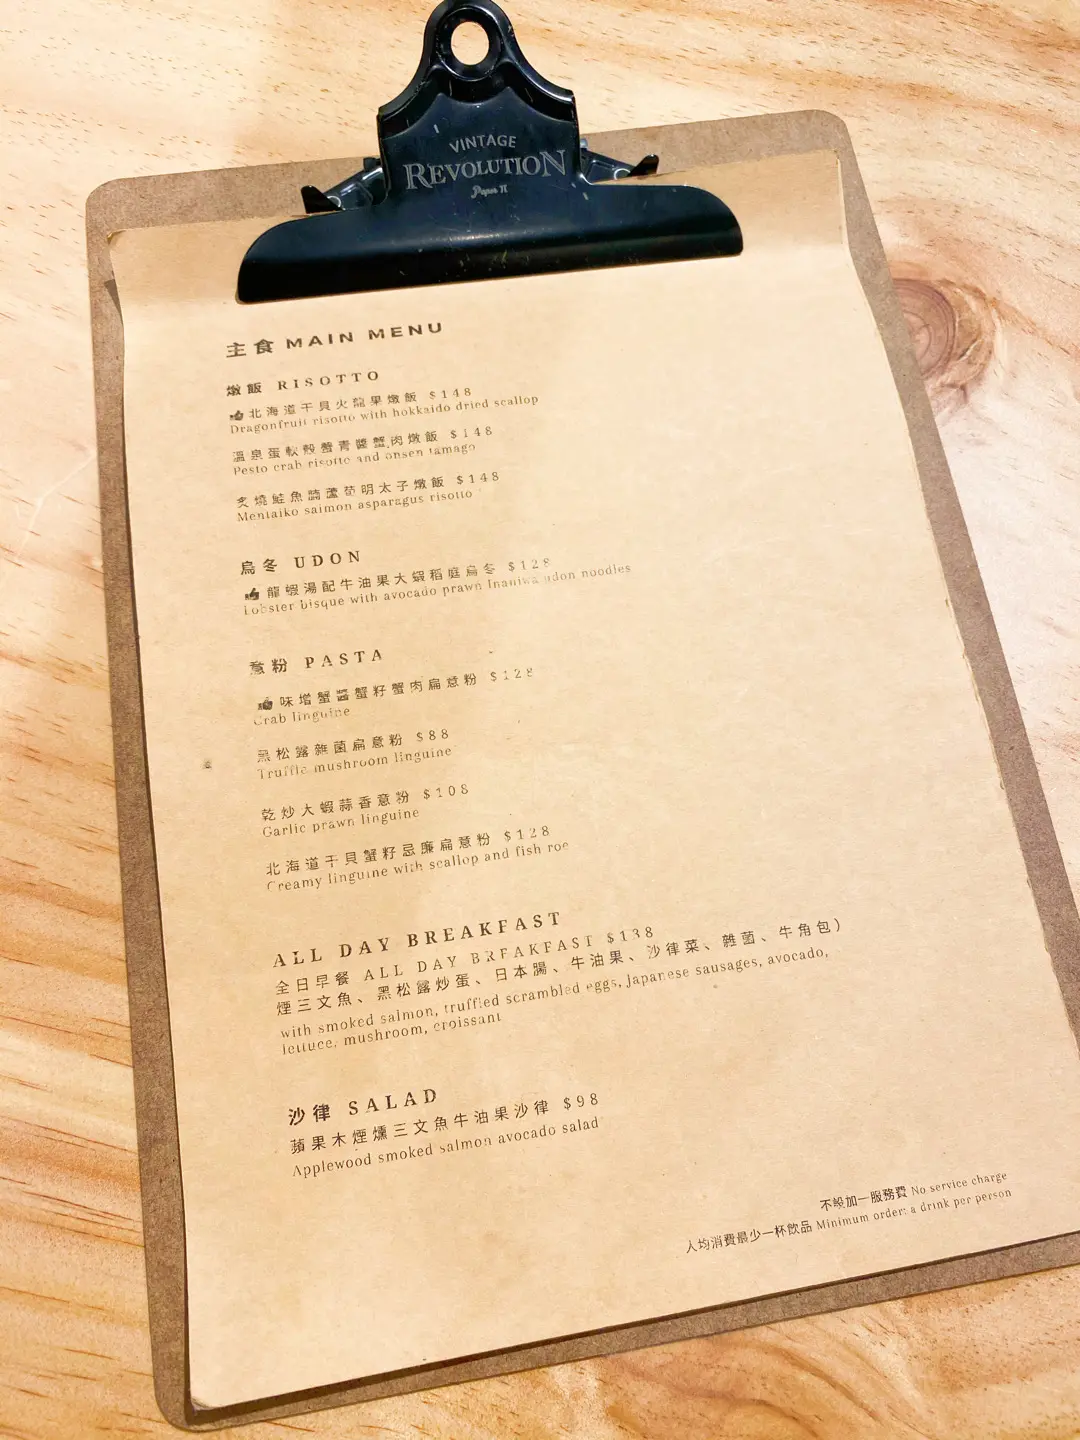 VINTAGE
REVOLUTION
Paper π
主食 MAIN MENU
燉飯 RISOTTO
北海道干貝火龍果燉飯 $148
Dragonfruit risotto with hokkaido dried scallop
溫泉蛋軟殼蟹青醬蟹肉燉飯 $148
Pesto crab risotto and onsen tamago
炙燒鮭魚 蘆荀明太子燉飯 $148
Mentaiko salmon asparagus risotto
烏冬 UDON
龍蝦湯配牛油果大蝦稻庭烏冬 $128
Lobster bisque with avocado prawn Inaniwa udon noodles
意粉 PASTA
味增蟹醬蟹籽蟹肉扁意粉 $128
Crab linguine
黑松露雜菌扁意粉 $88
Truffle mushroom linguine
乾炒大蝦蒜香意粉 $108
Garlic prawn linguine
北海道干貝蟹籽忌廉扁意粉 $128
Creamy linguine with scallop and fish roe
ALL DAY BREAKFAST
全日早餐 ALL DAY BREAKFAST $138
煙三文魚、黑松露炒蛋、日本腸、牛油果、沙律菜、雜菌、牛角包）
with smoked salmon, truffled scrambled eggs, Japanese sausages, avocado,
lettuce, mushroom, croissant
沙律 SALAD
蘋果木煙燻三文魚牛油果沙律 $98
Applewood smoked salmon avocado salad
不設加一服務費 No service charge
人均消費最少一杯飲品 Minimum order: a drink per person